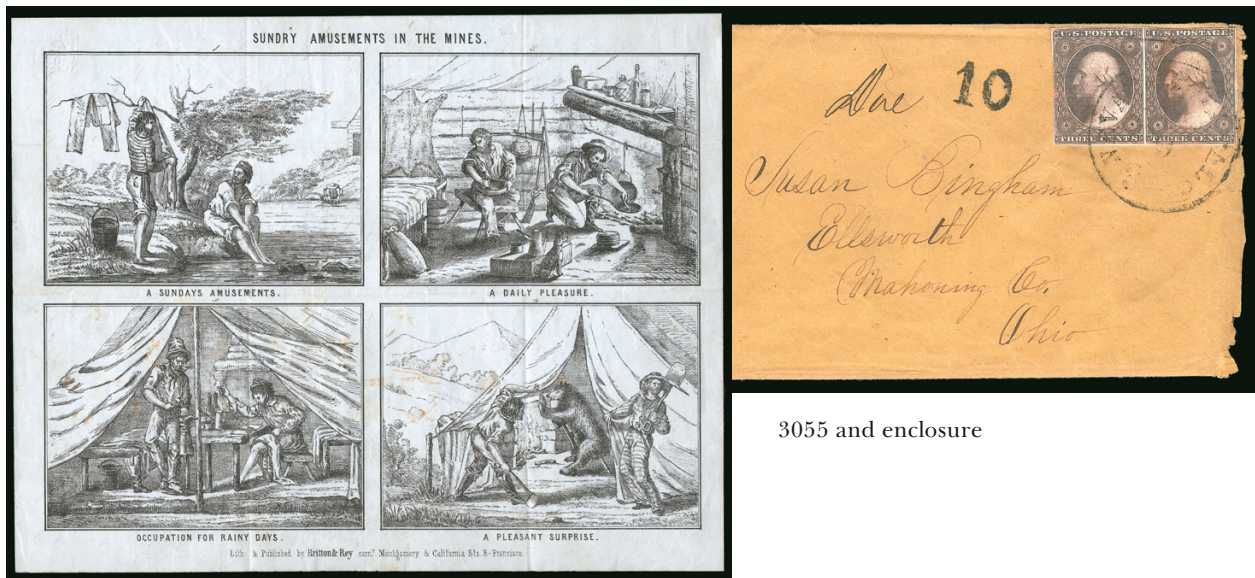 SUNDRY AMUSEMENTS IN THE MINES.
A SUNDAYS AMUSEMENTS.
A DAILY PLEASURE.
OCCUPATION FOR RAINY DAYS.
A PLEASANT SURPRISE.
Lith. & Published by Britton & Rey corn.r Montgomery & California Sts. S-Francisco.
U.S. POSTAGE
THREE CENTS
U.S. POSTAGE
THREE CENTS
Due 10
Susan Bingham
Ellsworth
Mahoning Co.
Ohio
3055 and enclosure